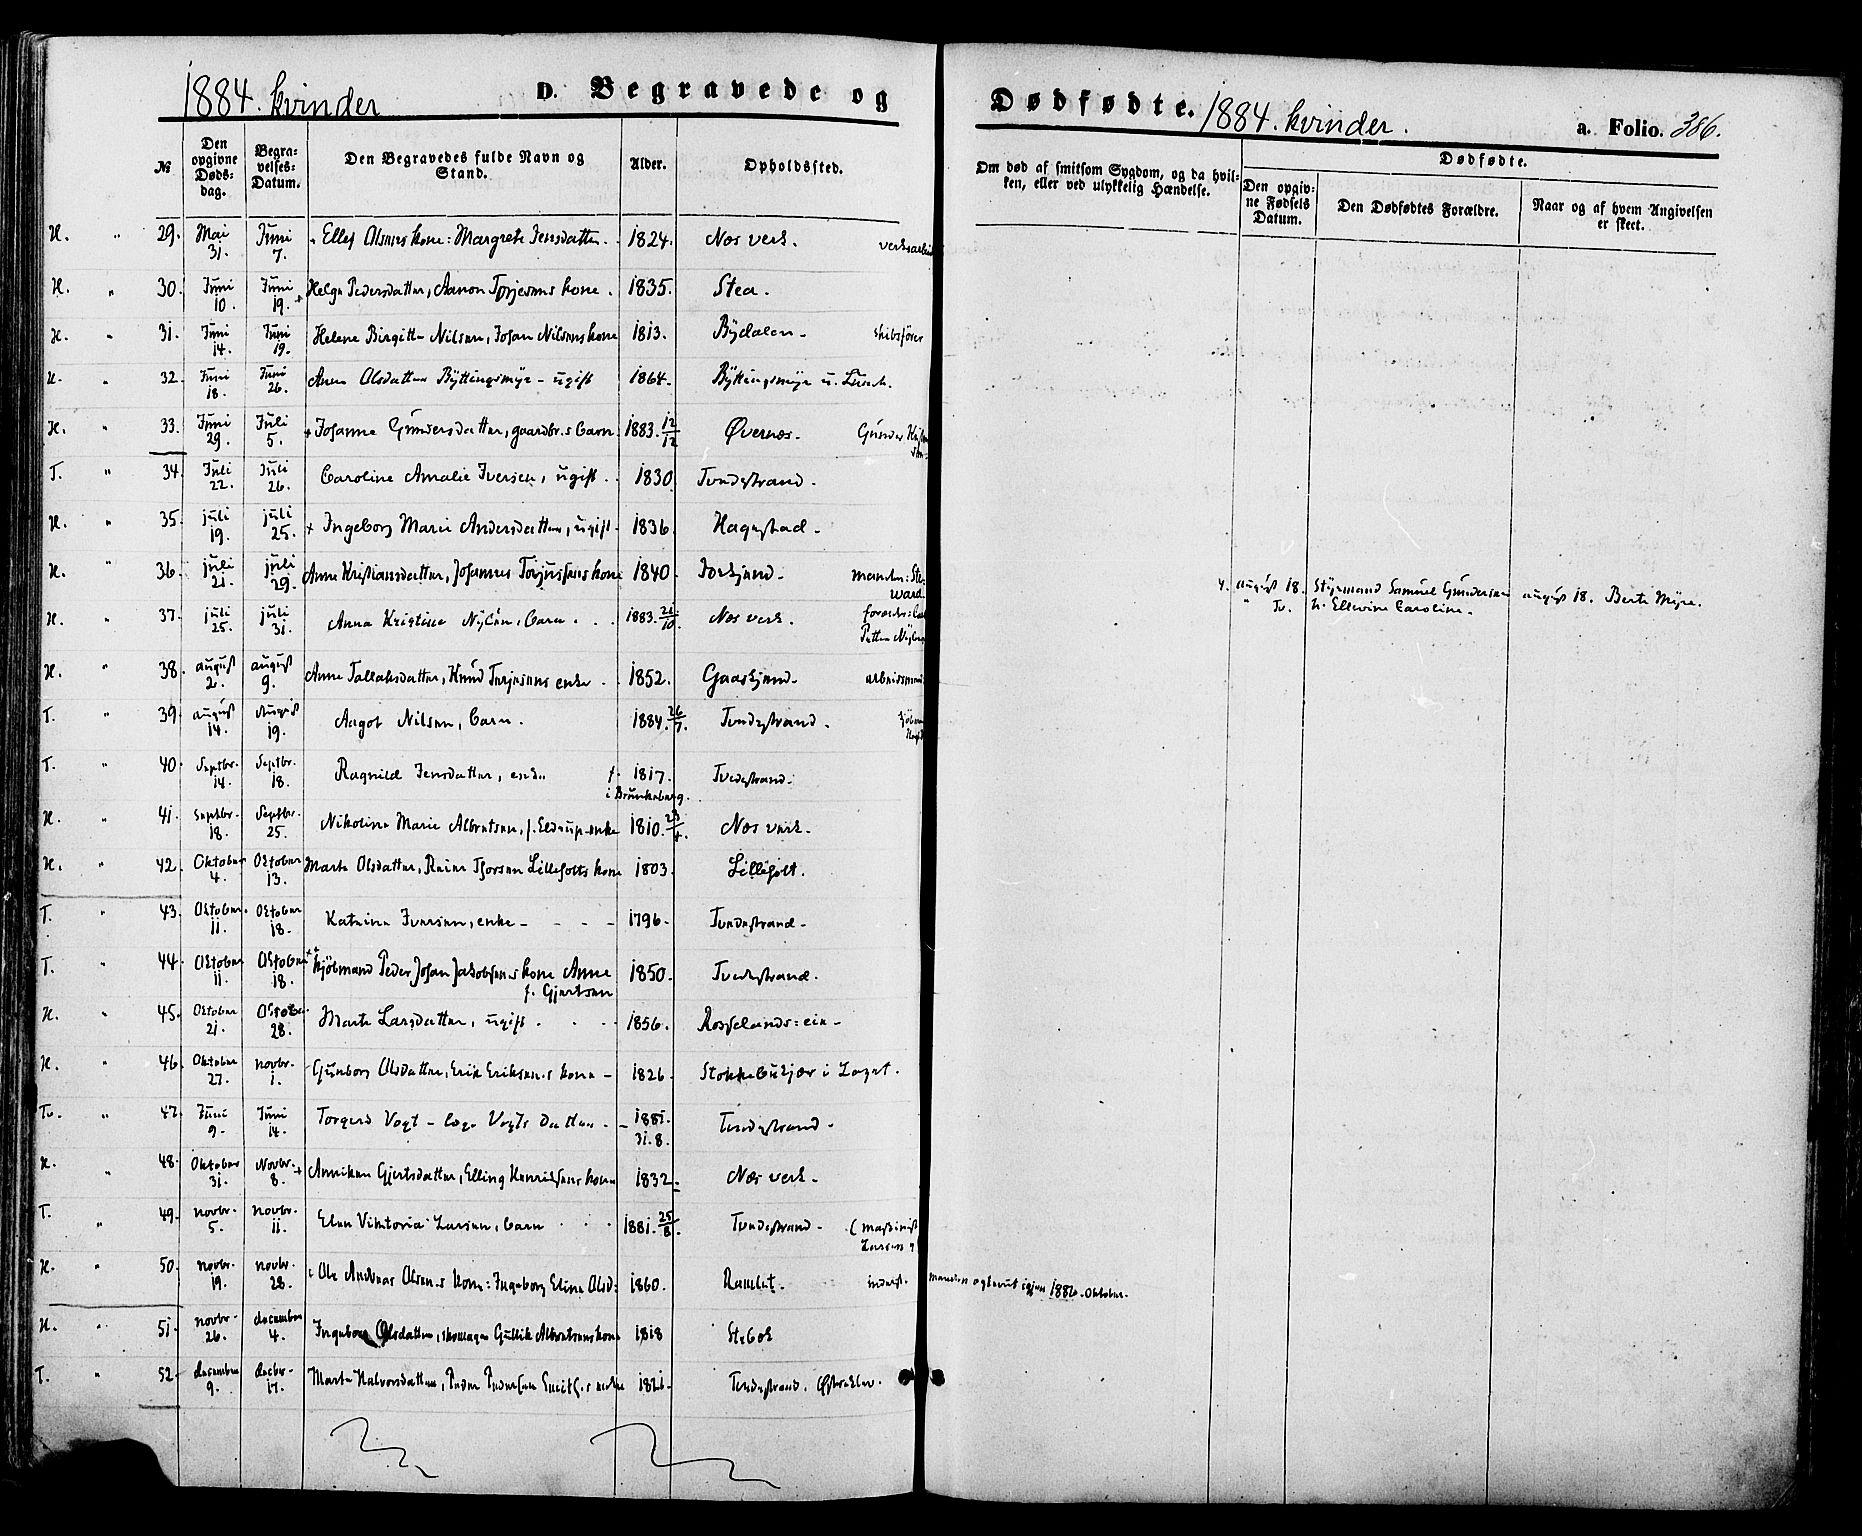 1884. kvinder
D. Begravede og
Dødfødte.
1884. kvinder.
a. Folio. 386.
№
Den opgivne Døds-dag.
Begra-velses-Datum.
Den Begravedes fulde Navn og Stand.
Alder.
Opholdssted.
Om død af smitsom Sygdom, og da hvil-
ken, eller ved ulykkelig Hændelse.
Dødfødte.
Den opgiv-ne Fødsels Datum.
Den Dødfødtes Forældre.
Naar og af hvem Angivelsen er skeet.
H. " 29. Mai 31. Juni 7. Ellef Olsens kone: Margrete Jensdatter. 1824. Nes verk.
H. " 30. Juni 10. Juni 19. + Helge Pedersdatter, Aanon Terjesens kone. 1835. Stea.
H. " 31. Juni 14. Juni 19. Helene Birgitte Nilsen, Johan Nilsens kone 1813. Bydalen - skibsfører
H. " 32. Juni 18. Juni 26. Anne Olsdatter Byttingsmyr - ugift 1864. Byttingsmyr
H. " 33. Juni 29. Juli 5. + Johanne Gundersdatter, gaardbr.s barn 1883. 12/12 Øvernes. Gunder
T. " 34. Juli 22. Juli 26. Caroline Amalie Iversen, ugift. 1830 Tvedestrand.
H. " 35. juli 19. juli 25. + Ingeborg Marie Andersdatter, ugift. 1836 Hagestad -
H. " 36. juli 21. juli 29. Anne Kristiansdatter, Johannes Terjussens kone 1840. manden: Ste-
ward.
H. " 37. juli 25. juli 31. Anna Kristine Nylén, barn. 1883. 21/10. Nes verk.
H. " 38. august 2. august 9. Anne Tallaksdatter, Knud Terjesens enke. 1852. Gaaskjend-
T. " 39. august 14. August 19. Aagot Nilsen, barn. 1884. 26/7. Tvedestrand.
T. " 40. Septbr. 14. Septbr. 18. Ragnild Jensdatter, enke f. 1817. Tvedestrand.
i Brunkeberg.
H. " 41. Septbr. 18. Septbr. 25. Nikoline Marie Albretsen, f. Eldrup-enke 1810. 23/4. Nes verk.
H. " 42. Oktober 4. Oktober 13. Marte Olsdatter, Reier Thorsen Lilleholts kone 1803. Lilleholt.
T. " 43. Oktober 11. Oktober 18. Katrine Iversen, enke - 1796. Tvedestrand -
T. " 44. Oktober 11. Oktober 18. kjøbmand Peder Johan Jakobsens kone Anne 1850. Tvedestrand.
f. Gjertsen
H. " 45. Oktober 21. Oktober 28. Marte Larsdatter, ugift. 1856. Rosselands:eie -
H. " 46. Oktober 27. novbr. 1. Gunborg Olsdatter, Erik Eriksens kone - 1826. Stokkebukjær i Laget.
Tv. " 47. Juni 9. Juni 14. Torgerd Vogt - Vogts datter. 1881. Tvedestrand.
31.8.
H. " 48. Oktober 31. Novbr. 8. + Anniken Gjertsdatter, Elling Henriksens kone 1832. Nes verk.
T. " 49. novbr. 5. novbr. 11. Elen Viktoria Larsen, barn 1881. 25/8. Tvedestrand - (maskinist
Larsen)
H. " 50. novbr. 19. novbr. 28. Ole Andreas Olsens kone: Ingeborg Eline Olsd: 1860. Ramlet. inderst. manden agtevut igjen 1886. Oktober.
H. " 51. novbr. 26. december 4. Ingeborg Olsdatter, skomager Gullik Albretsens kone 1818 Stebok
T. " 52. december 9. decbr. 17. Marte Halvorsdatter, Peder Pedersen enke 1821. Tvedestrand. Østerklev.
4. august 18. Styrmand Samuel Gundersen august 18. Berte Myre.
" Tv. h. Ellevine Caroline.